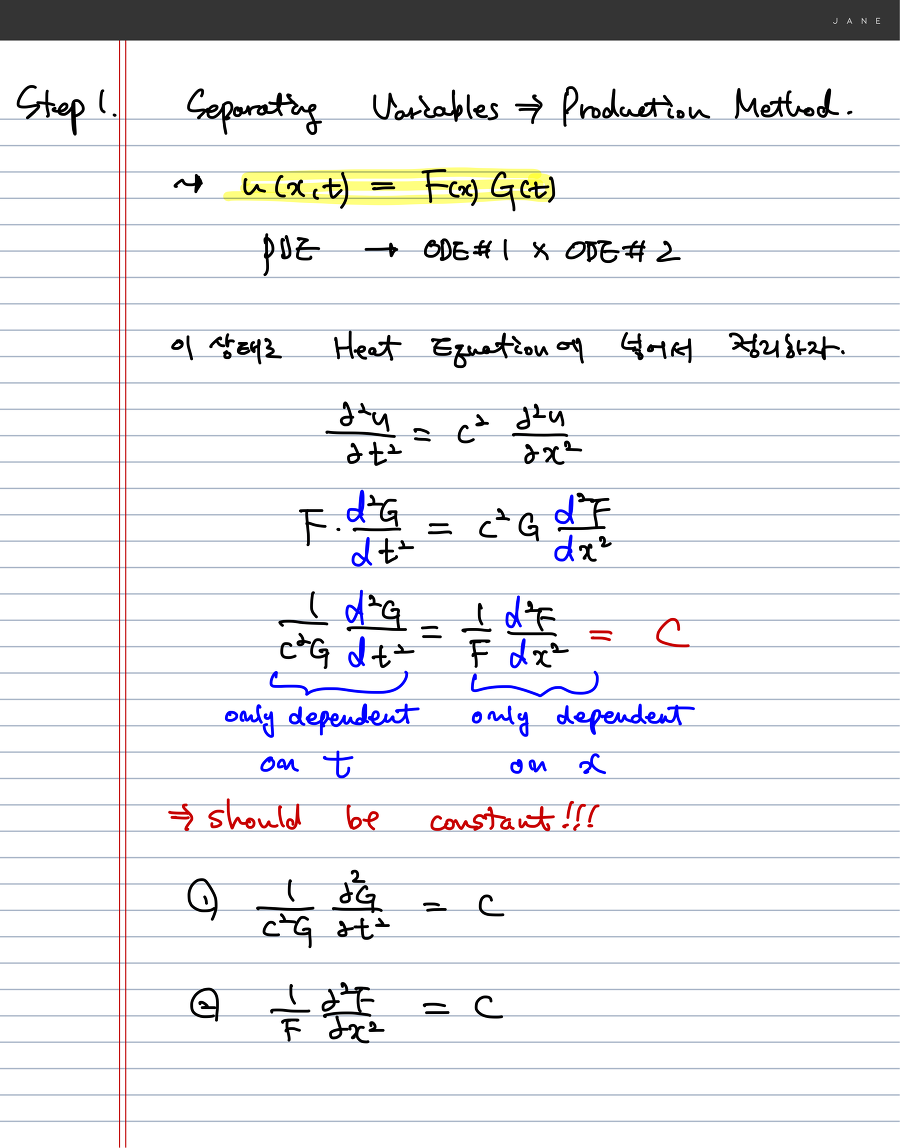 JANE
Step 1. Separating Variables ⇒ Production Method.
⤳ u(x,t) = F(x) G(t)
PDE → ODE#1 × ODE#2
이 상태로 Heat Equation에 넣어서 정리하자.
∂²u/∂t² = c² ∂²u/∂x²
F · d²G/dt² = c² G d²F/dx²
1/(c²G) d²G/dt² = 1/F d²F/dx² = C
only dependent only dependent
on t on x
⇒ should be constant!!!
① 1/(c²G) ∂²G/∂t² = C
② 1/F ∂²F/∂x² = C